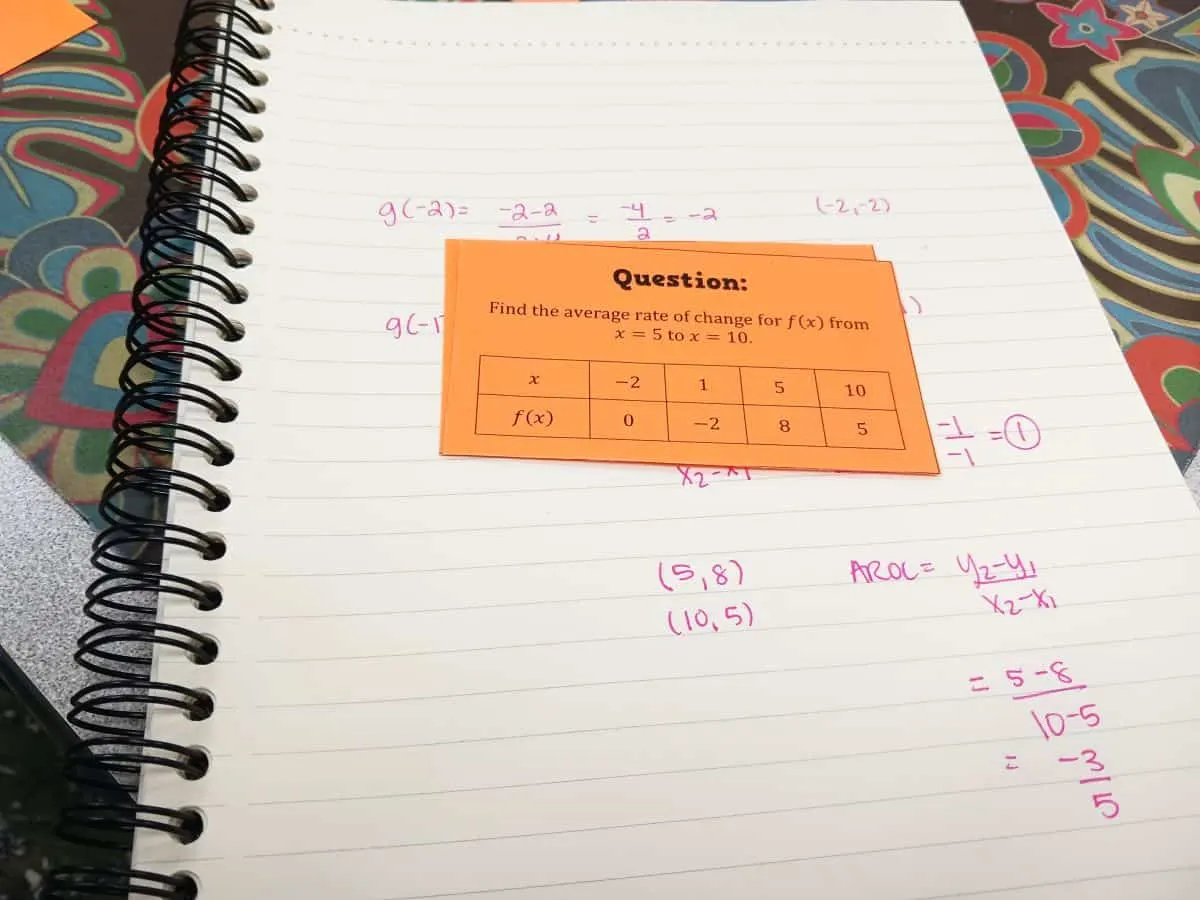 g(-2)= -2-2 = -4 = -2 (-2,-2)
2
Question:
Find the average rate of change for f(x) from
x = 5 to x = 10.
x −2 1 5 10
f(x) 0 −2 8 5
g(-1
)
-1 = 1
-1
x2-x1
(5,8) AROC = y2-y1
(10,5) x2-x1
= 5-8
10-5
= -3
5